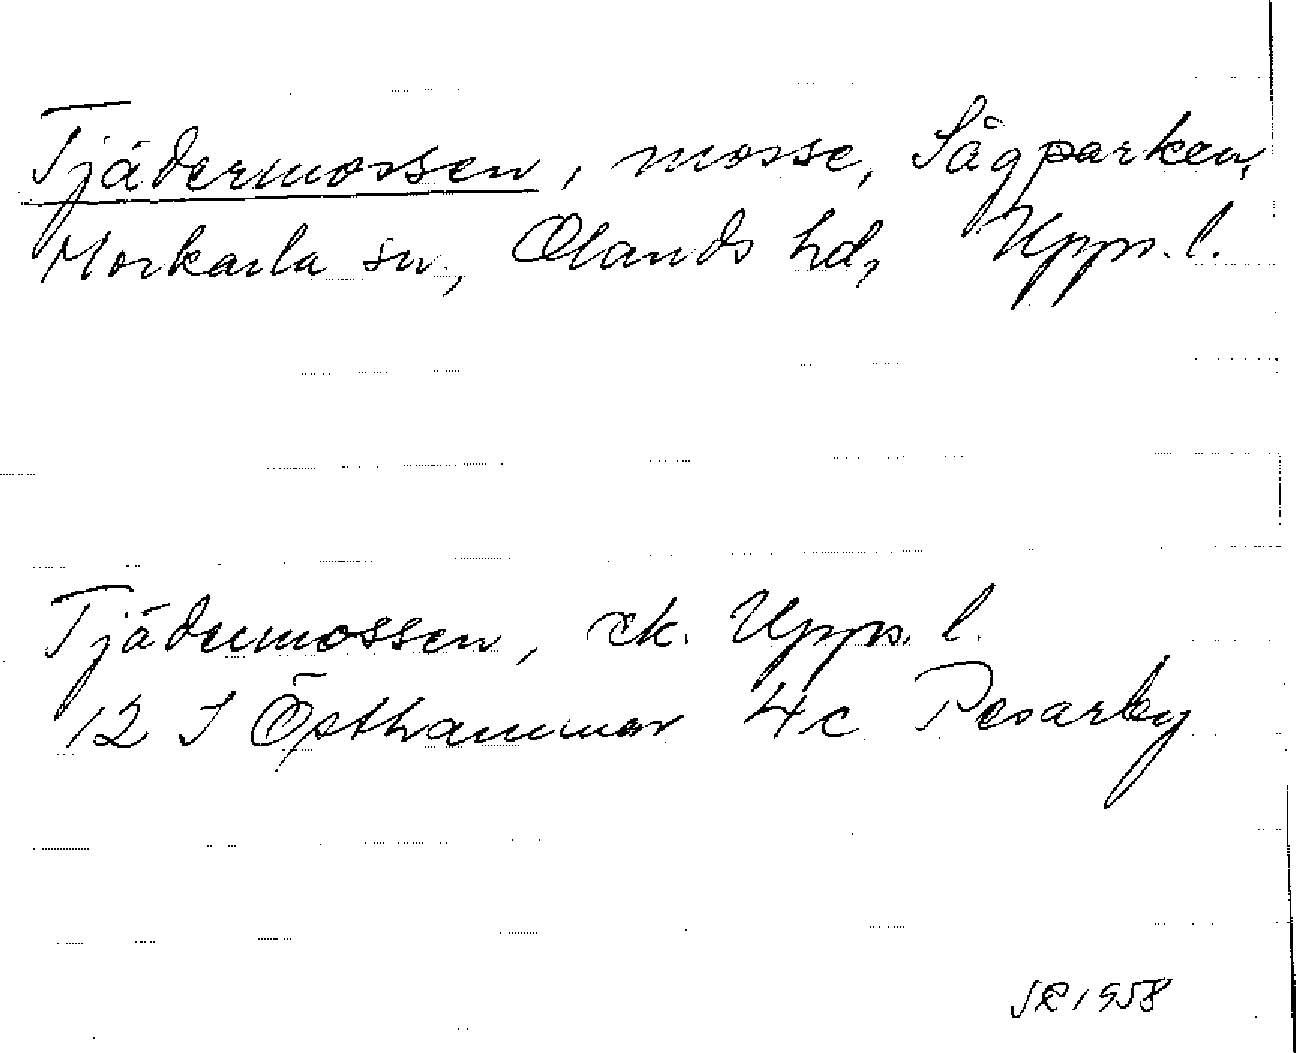 Tjädermossen, mosse, Sågparken,
Morkarla sn, Olands hd, Upps. l.
Tjädermossen, ek. Upps. l.
12 I Östhammar 4c Pesarby
SR 1958